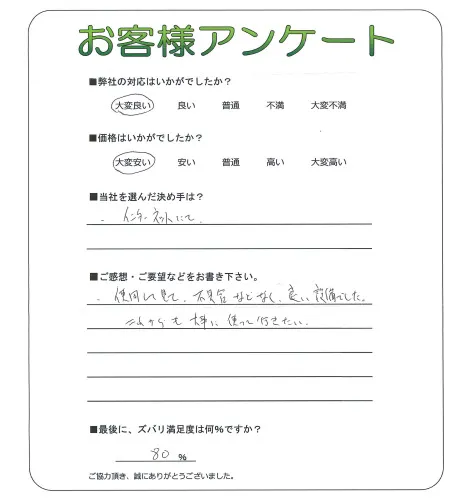 お客様アンケート
■弊社の対応はいかがでしたか？
大変良い 良い 普通 不満 大変不満
■価格はいかがでしたか？
大変安い 安い 普通 高い 大変高い
■当社を選んだ決め手は？
・インターネットにて。
■ご感想・ご要望などをお書き下さい。
・使用して見て、不具合などなく、良い設備でした。
これからも大事に使って行きたい。
■最後に、ズバリ満足度は何％ですか？
80 ％
ご協力頂き、誠にありがとうございました。